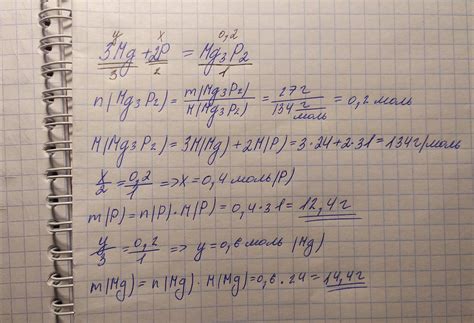 y x 0,2
3Mg + 2P = Mg₃P₂
3 2 1
n(Mg₃P₂) = m(Mg₃P₂)/M(Mg₃P₂) = 27г/134 г/моль = 0,2 моль
M(Mg₃P₂) = 3M(Mg) + 2M(P) = 3·24 + 2·31 = 134 г/моль
x/2 = 0,2/1 => x = 0,4 моль(P)
m(P) = n(P)·M(P) = 0,4·31 = 12,4 г
y/3 = 0,2/1 => y = 0,6 моль (Mg)
m(Mg) = n(Mg)·M(Mg) = 0,6·24 = 14,4 г